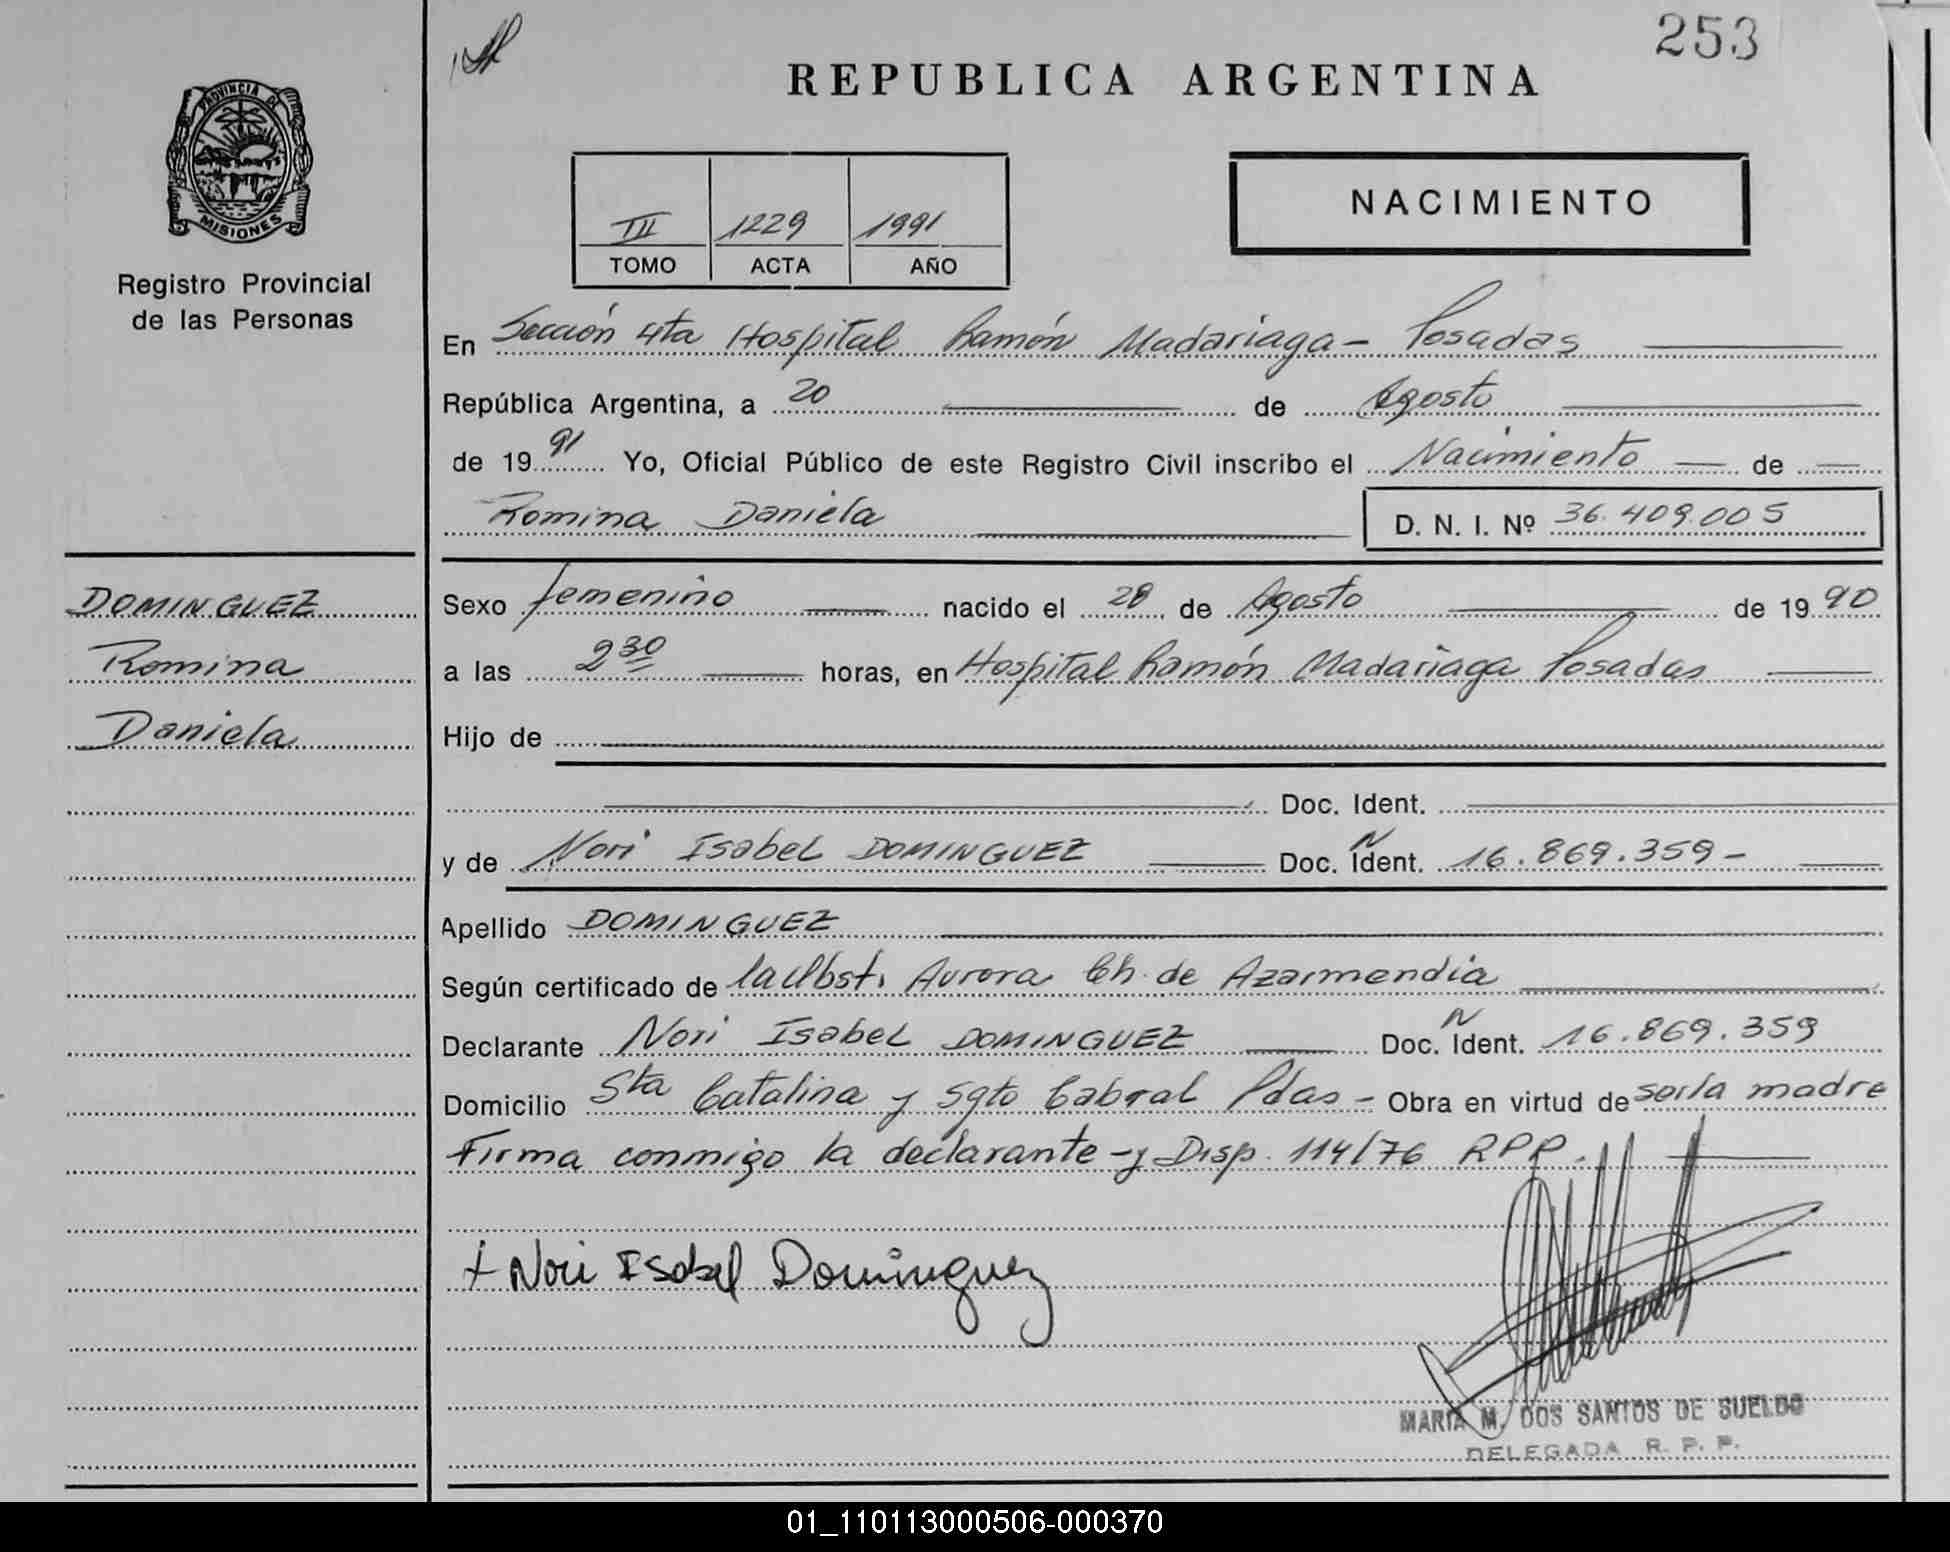 253
REPUBLICA ARGENTINA
PROVINCIA DE
MISIONES
Registro Provincial
de las Personas
III 1229 1991
TOMO ACTA AÑO
NACIMIENTO
En Sección 4ta Hospital Ramón Madariaga - Posadas
República Argentina, a 20 de Agosto
de 1991 Yo, Oficial Público de este Registro Civil inscribo el Nacimiento de
Romina Daniela D. N. I. Nº 36.409.005
DOMINGUEZ
Romina
Daniela
Sexo femenino nacido el 28 de Agosto de 1990
a las 2 30 horas, en Hospital Ramón Madariaga Posadas
Hijo de
Doc. Ident.
y de Nori Isabel DOMINGUEZ Doc. N Ident. 16.869.359-
Apellido DOMINGUEZ
Según certificado de la Obst. Aurora Ch. de Azarmendia
Declarante Nori Isabel DOMINGUEZ Doc. N Ident. 16.869.359
Domicilio Sta Catalina y Sgto Cabral Pdas - Obra en virtud de ser la madre
Firma conmigo la declarante - y Disp. 114/76 RPP.
+ Nori Isabel Dominguez
MARIA M. DOS SANTOS DE SUELDO
DELEGADA R. P. P.
01_110113000506-000370